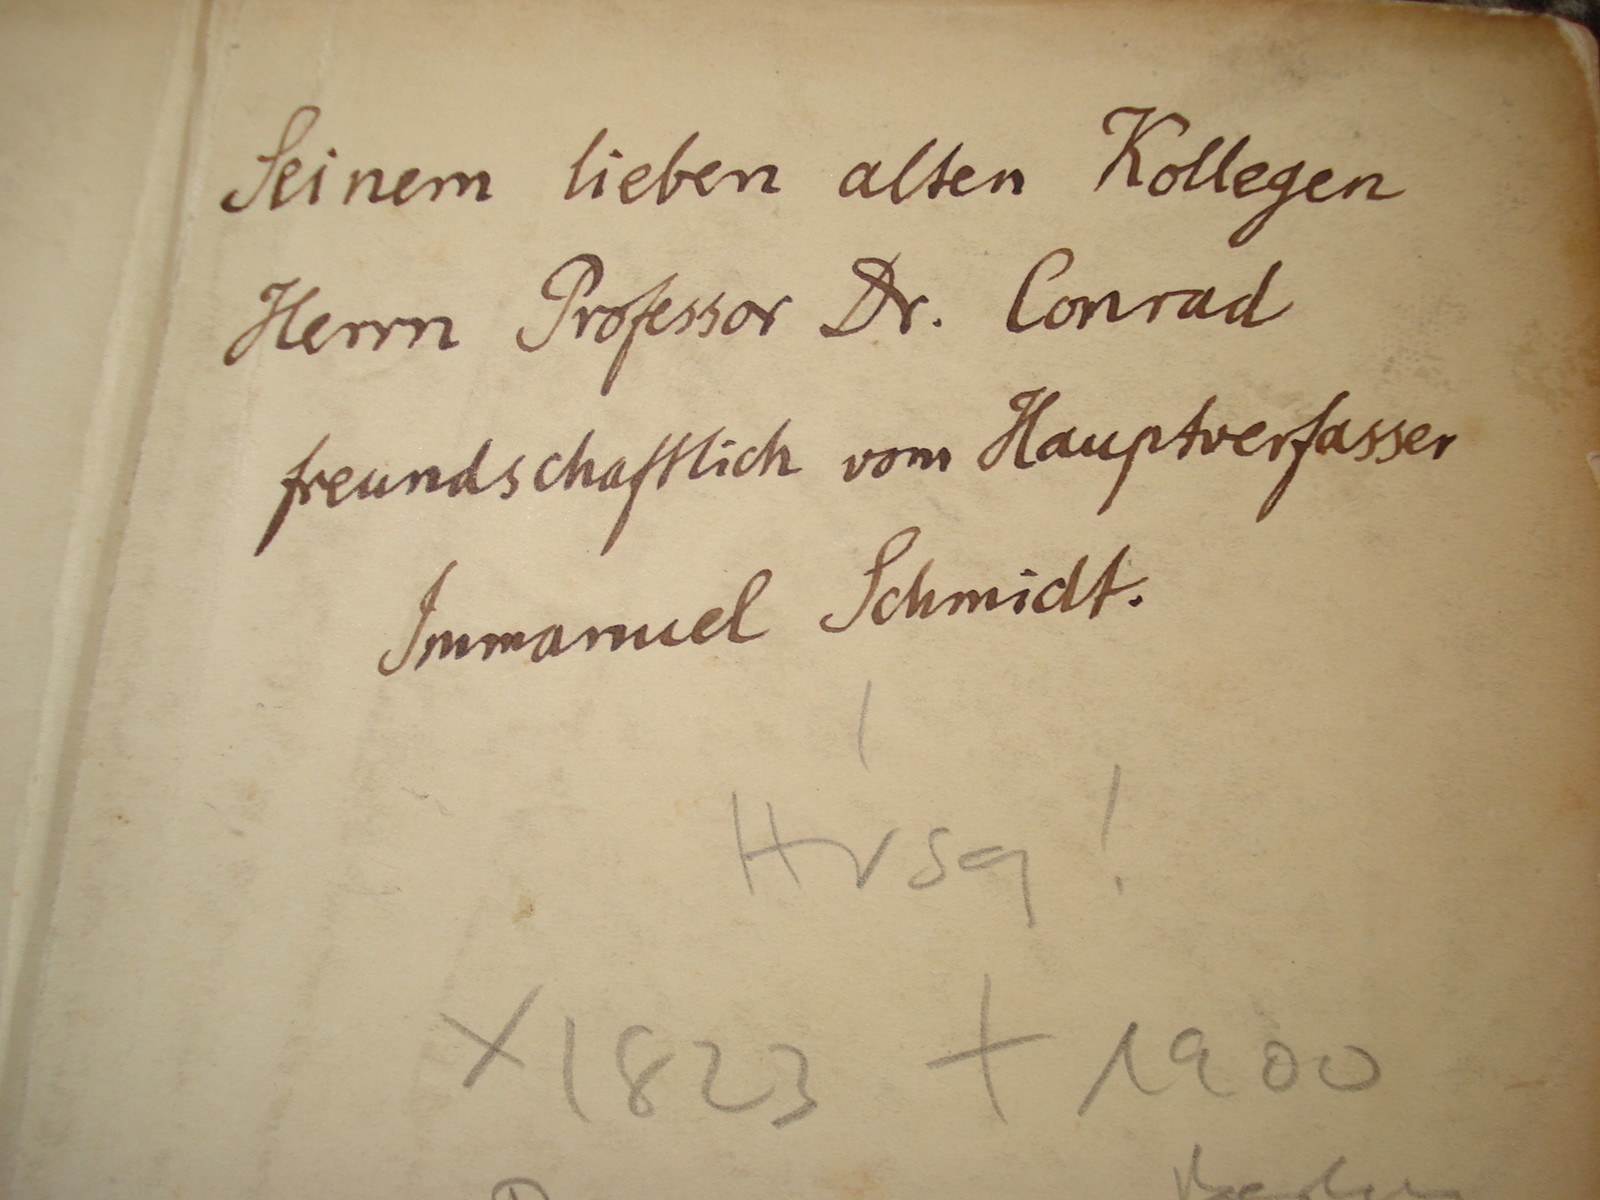 Seinem lieben alten Kollegen
Herrn Professor Dr. Conrad
freundschaftlich vom Hauptverfasser
Immanuel Schmidt.
Hrsg!
x 1823 + 1900